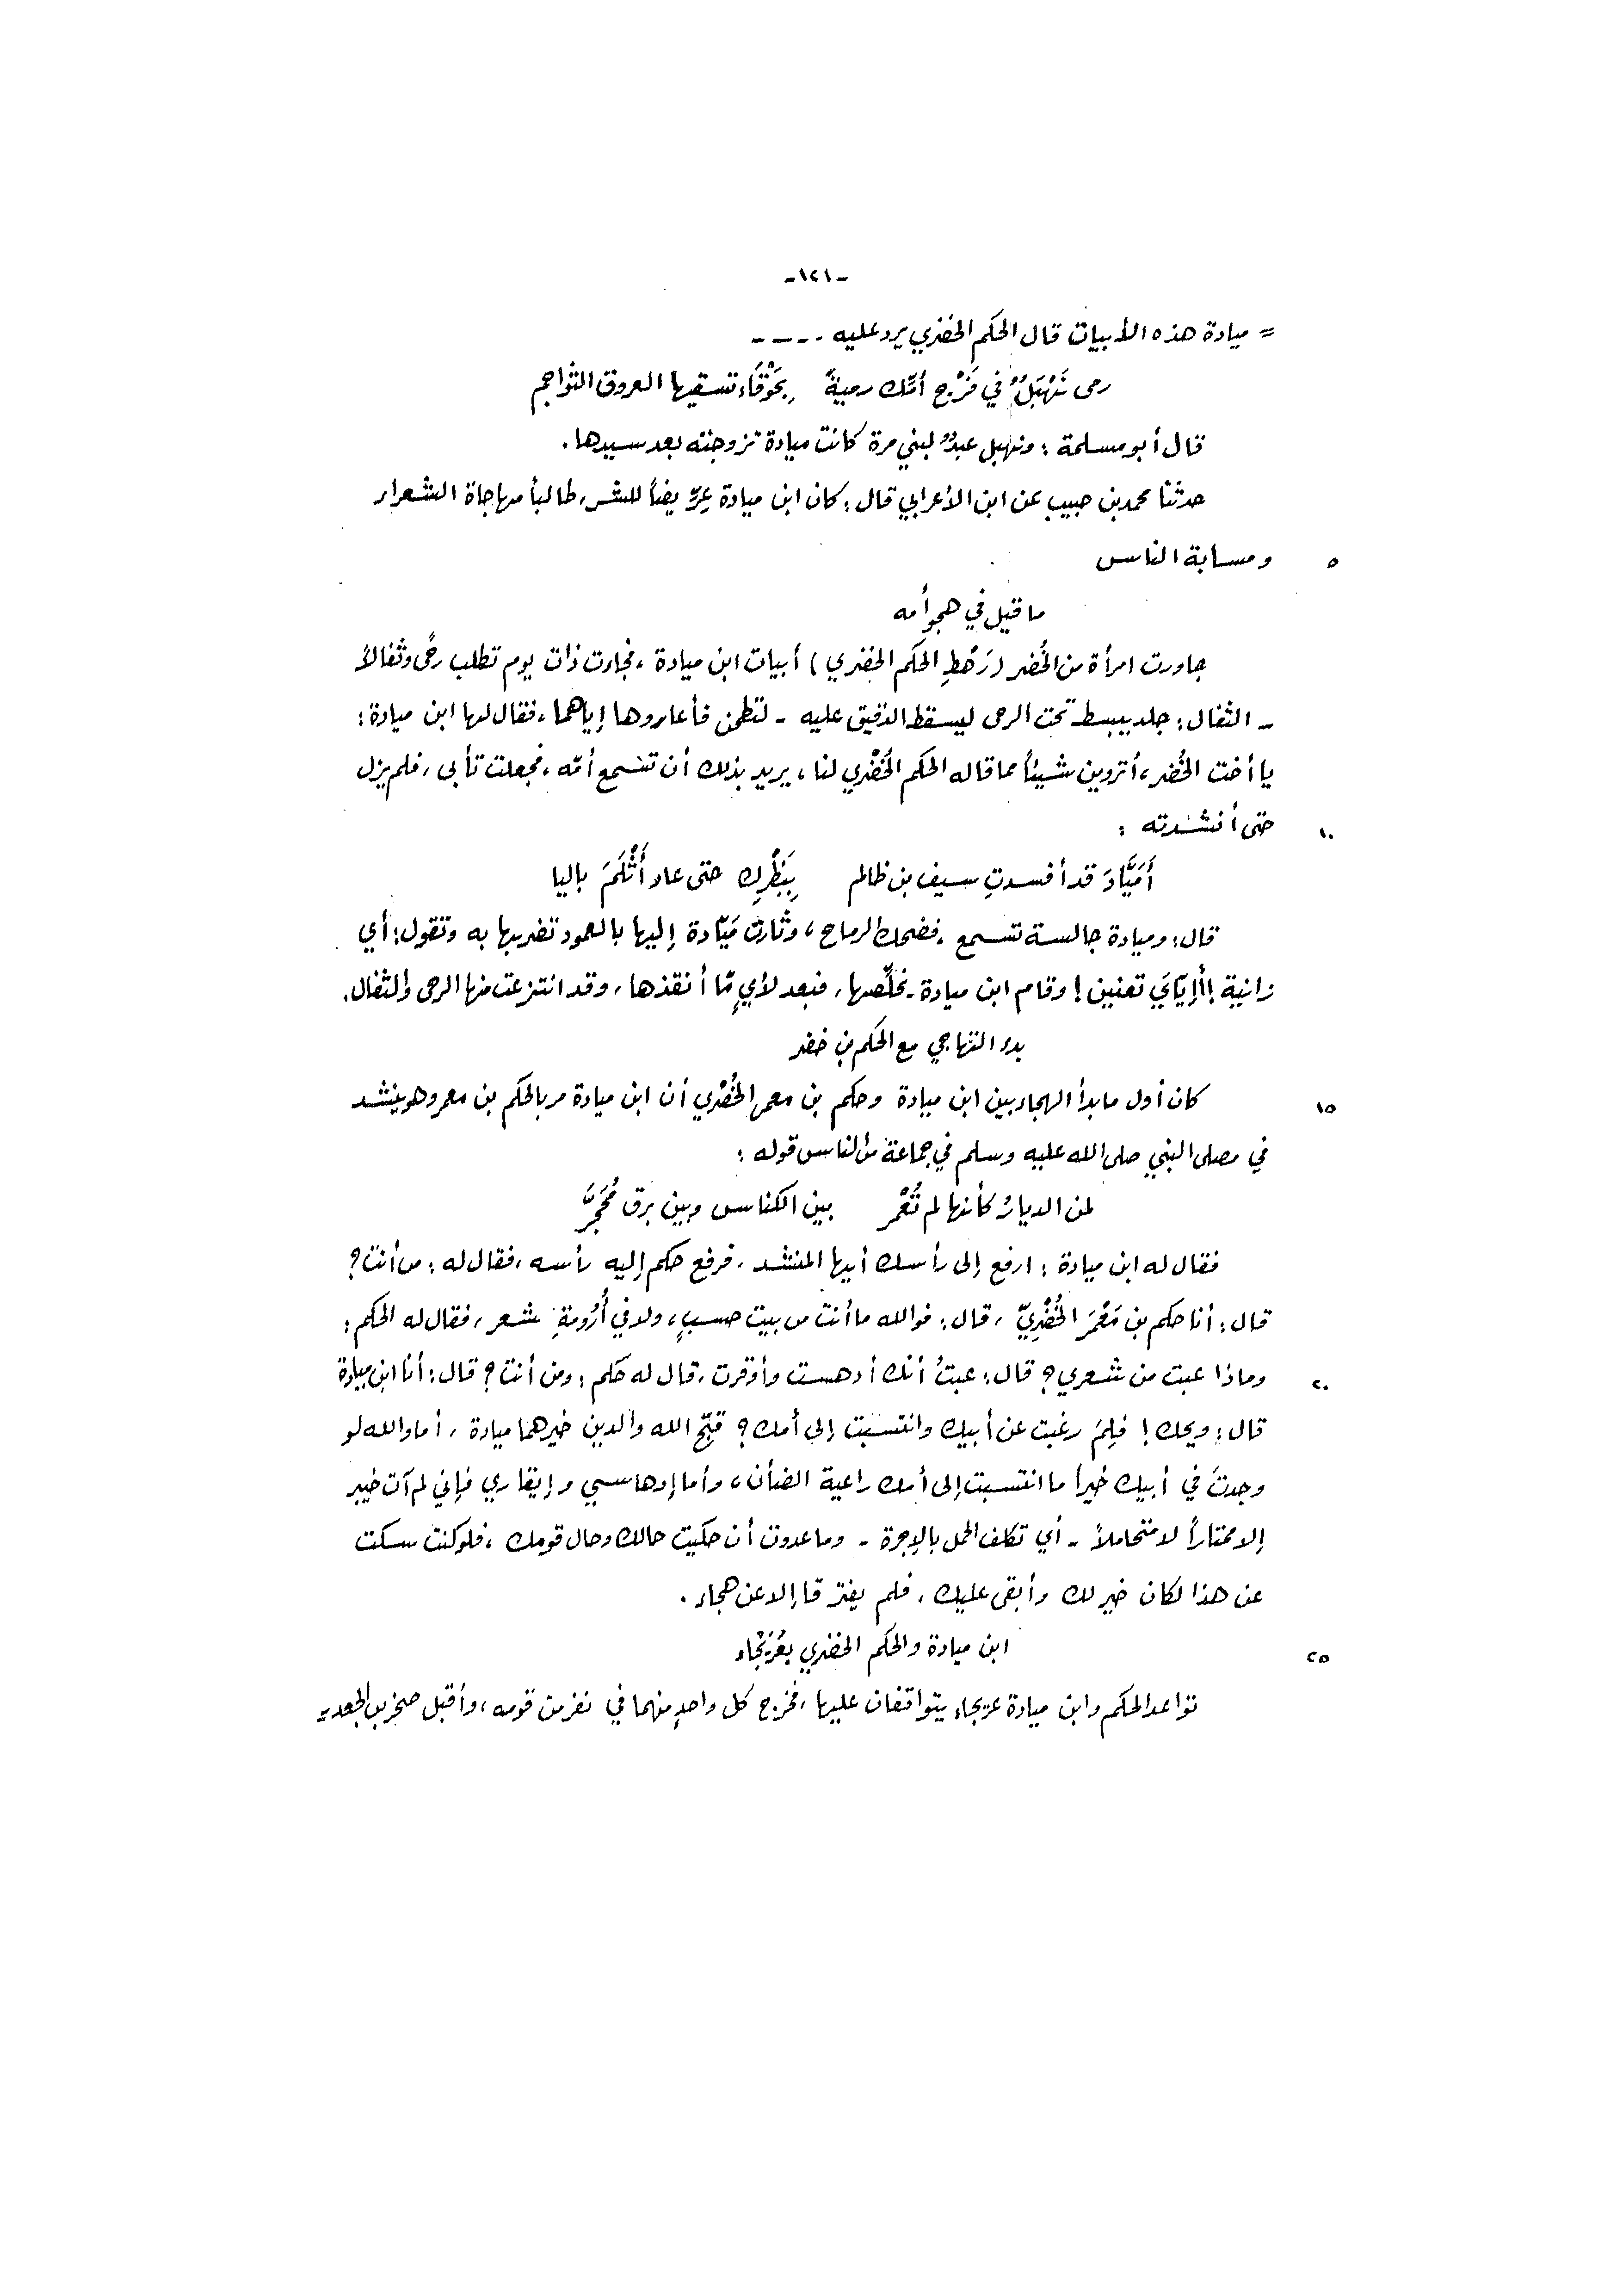 -١٢١-
= ميادة هذه الأبيات قال الحكم الخضري يرد عليه - - - -
رمى نَهْبَلٌ في فَرْجِ أمّك رميةً بِحَوْقَاءَ تسقيها العروق الثواجم
قال أبو مسلمة : ونهبل عبدٌ لبني مرة كانت ميادة تزوجته بعد سيدها .
حدثنا محمد بن حبيب عن ابن الأعرابي قال : كان ابن ميادة عِرّيضاً للشر، طالباً مهاجاة الشعراء
٥ ومسابة الناس
ما قيل في هجو أمه
جاورت امرأة من الخُضر (رَهْطِ الحكم الخضري) أبيات ابن ميادة ، فجاءت ذات يوم تطلب رحًى وثفالاً
- الثفال : جلد يبسط تحت الرحى ليسقط الدقيق عليه - لتطحن فأعاروها إياهما ، فقال لها ابن ميادة :
يا أخت الخُضر ، أتروين شيئاً مما قاله الحكم الخُضْري لنا ، يريد بذلك أن تسمع أمّه ، فجعلت تأبى ، فلم يزل
١٠ حتى أنشدته :
أَمَيَّادَ قد أفسدتِ سيف بن ظالم بِبَظْرِكِ حتى عاد أَثْلَمَ باليا
قال : وميادة جالسة تسمع ، فضحك الرماح ، وثارت مَيّادة إليها بالعمود تضربها به وتقول : أي
زانية ! أإيّايَ تعنين ! وقام ابن ميادة يخلّصها ، فبعد لأيٍ مّا أنقذها ، وقد انتزعت منها الرحى والثفال .
بدء التهاجي مع الحكم بن خضر
١٥ كان أول ما بدأ الهجاء بين ابن ميادة وحكم بن معمر الخُضْري أن ابن ميادة مر بالحكم بن معمر وهو ينشد
في مصلى النبي صلى الله عليه وسلم في جماعة من الناس قوله :
لمن الديارُ كأنها لم تُعْمر بين الكناس وبين برق مُحَجَّر
فقال له ابن ميادة : ارفع إلي رأسك أيها المنشد ، فرفع حكم إليه رأسه ، فقال له : من أنت ؟
قال : أنا حكم بن مَعْمَر الخُضْرِيّ ، قال : فوالله ما أنت من بيت حسبٍ ، ولا في أُرُومةِ شعر ، فقال له الحكم :
٢٠ وماذا عبت من شعري ؟ قال : عبتُ أنك أدهست وأوقرت ، قال له حكم : ومن أنت ؟ قال : أنا ابن ميادة
قال : ويحك ! فلِمَ رغبت عن أبيك وانتسبت إلى أمك ؟ قبّح الله والدين خيرهما ميادة ، أما والله لو
وجدتَ في أبيك خيراً ما انتسبت إلى أمك راعية الضأن ، وأما إدهاسي وإيقاري فإني لم آت خيبر
إلا ممتاراً لا متحاملاً - أي تكلف الحمل بالإجرة - وما عدوت أن حكيت حالك وحال قومك ، فلو كنت سكت
عن هذا لكان خير لك وأبقى عليك ، فلم يفترقا إلا عن هجاء .
٢٥ ابن ميادة والحكم الخضري بعُرَيْجاء
تواعد الحكم وابن ميادة عريجاء يتواقفان عليها ، فخرج كل واحدٍ منهما في نفر من قومه ، وأقبل صخر بن الجعد =